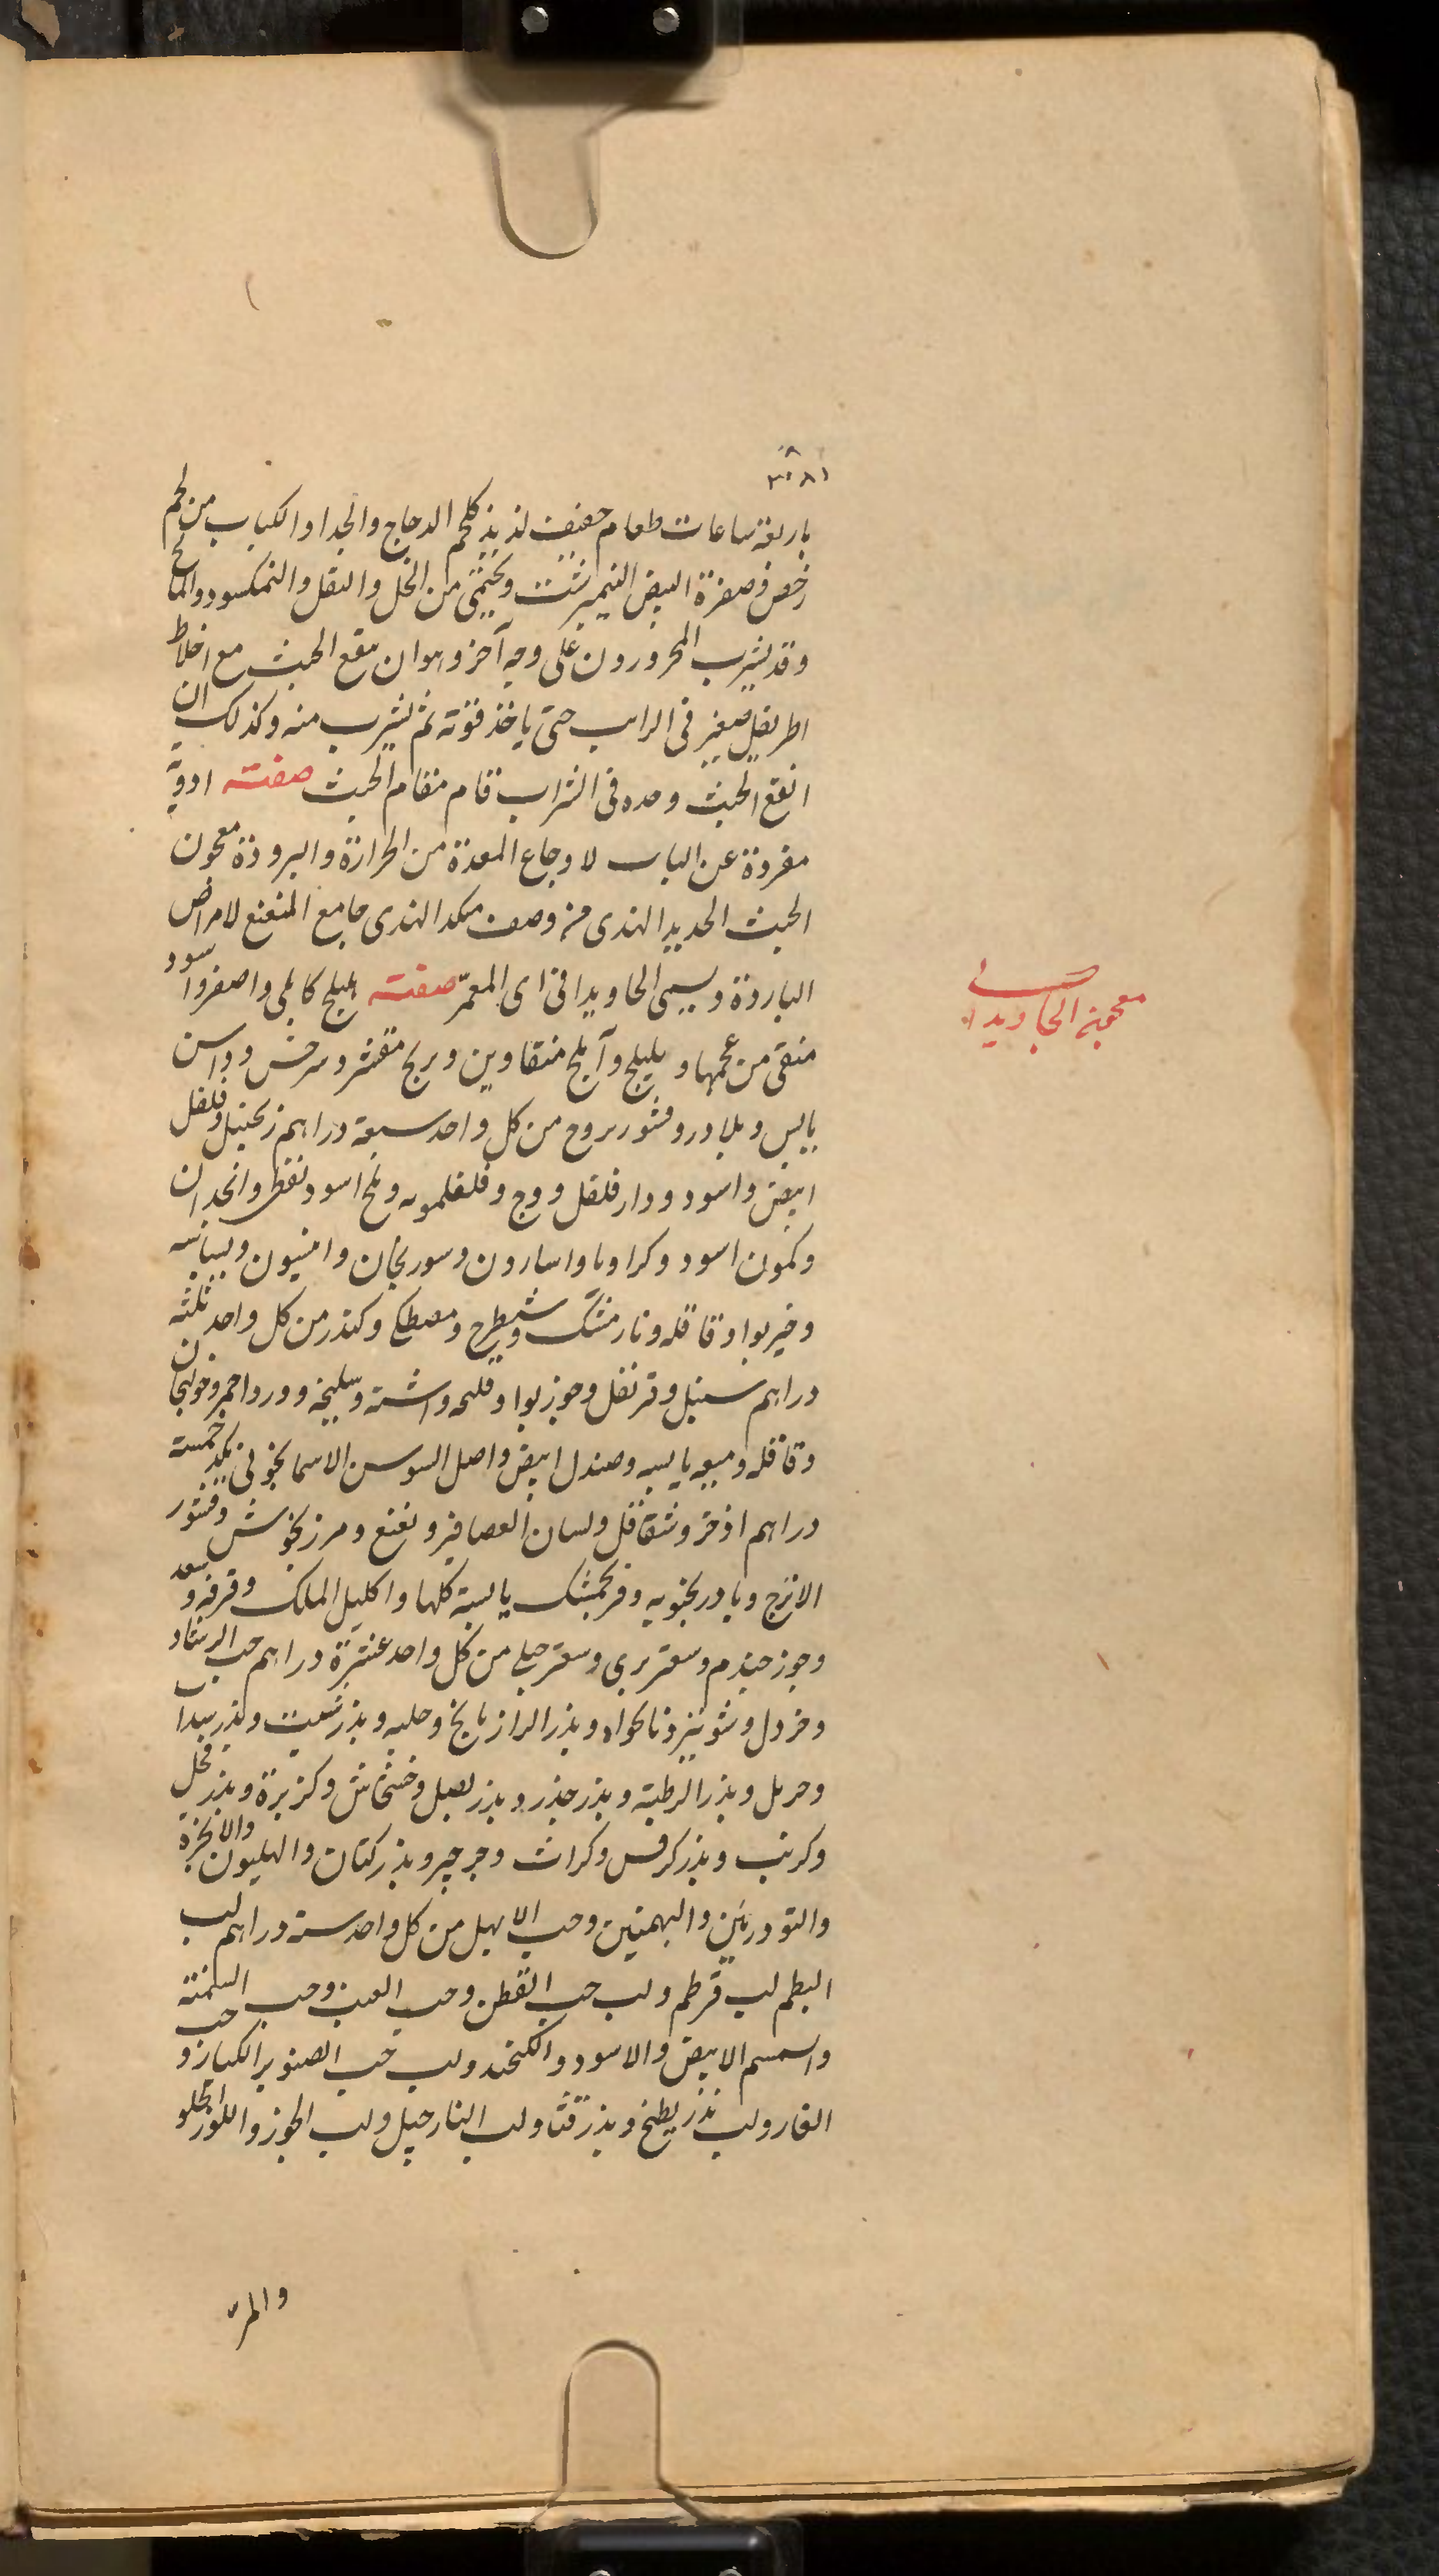 ٣٠٨١
باربعة ساعات طعام خفيف لذيذ كلحم الدجاج والجدا والكباب من لحم
رخص وصفرة البيض النيمبرشت ويحتمى من الخل والبقل والنمكسود والمالح
وقد يشرب المحرورون على وجه آخر وهو ان ينقع الخبث مع اخلاط
اطريفل صغير فى الراب حتى ياخذ قوته ثم يشرب منه وكذلك ان
انقع الخبث وحده فى الشراب قام مقام الخبث صفته ادوية
مفردة عن الباب لاوجاع المعدة من الحرارة والبرودة معجون
الخبث الحديد الهندى من وصف منكد الهندى جامع المنفع لامراض
الباردة ويسمى الجاويدانى اى المعمّر صفته هليلج كابلى واصفر واسود
معجون الجاويدانى
منقى من عجمها وبليلج وآملج منقاوين وبرنج مقشر وسرخس وراسن
يابس وبلادر وقشور سروج من كل واحد سبعة دراهم زنجبيل وفلفل
ابيض واسود ودار فلفل ووج وفلفلمويه وملح اسود نفطى وانجدان
وكمون اسود وكراويا واسارون وسورنجان وانيسون وبسباسه
وخيربوا وقاقله ونارمشك وشيطرج ومصطكى وكندر من كل واحد ثلثة
دراهم سنبل وقرنفل وجوزبوا وفلنجه واشنه وسليخه وورد احمر وخولنجان
وقاقله وميعه يابسه وصندل ابيض واصل السوسن الاسمانجونى بكد خمسة
دراهم اذخر وشقاقل ولسان العصافير ونعنع ومرزنجوش وقشور
الاترج وبادرنجبويه وفرنجمشك يابسة كلها واكليل الملك وقرفه وسعد
وجوز جندم وسعتر بري وسعتر جبلى من كل واحد عشرة دراهم حب الرشاد
وخردل وشونيز ونانخواه وبذر الرازيانج وحلبه وبذر شبت وبذر سداب
وحرمل وبذر الرطبة وبذر جذر وبذر بصل وخشخاش وكزبرة وبذر فجل
وكرنب وبذر كرفس وكراث وجرجير وبذر كتان والهليون والانجرة
والتودريين والبهمنين وحب الابهل من كل واحد ستة دراهم لب
البطم لب قرطم ولب حب القطن وحب العنب وحب السمنة
والسمسم الابيض والاسود والكنجد ولب حب الصنوبر الكبار وحب
الغار ولب بذر بطيخ وبذر قثا ولب النارجيل ولب الجوز واللوز الحلو
والمر